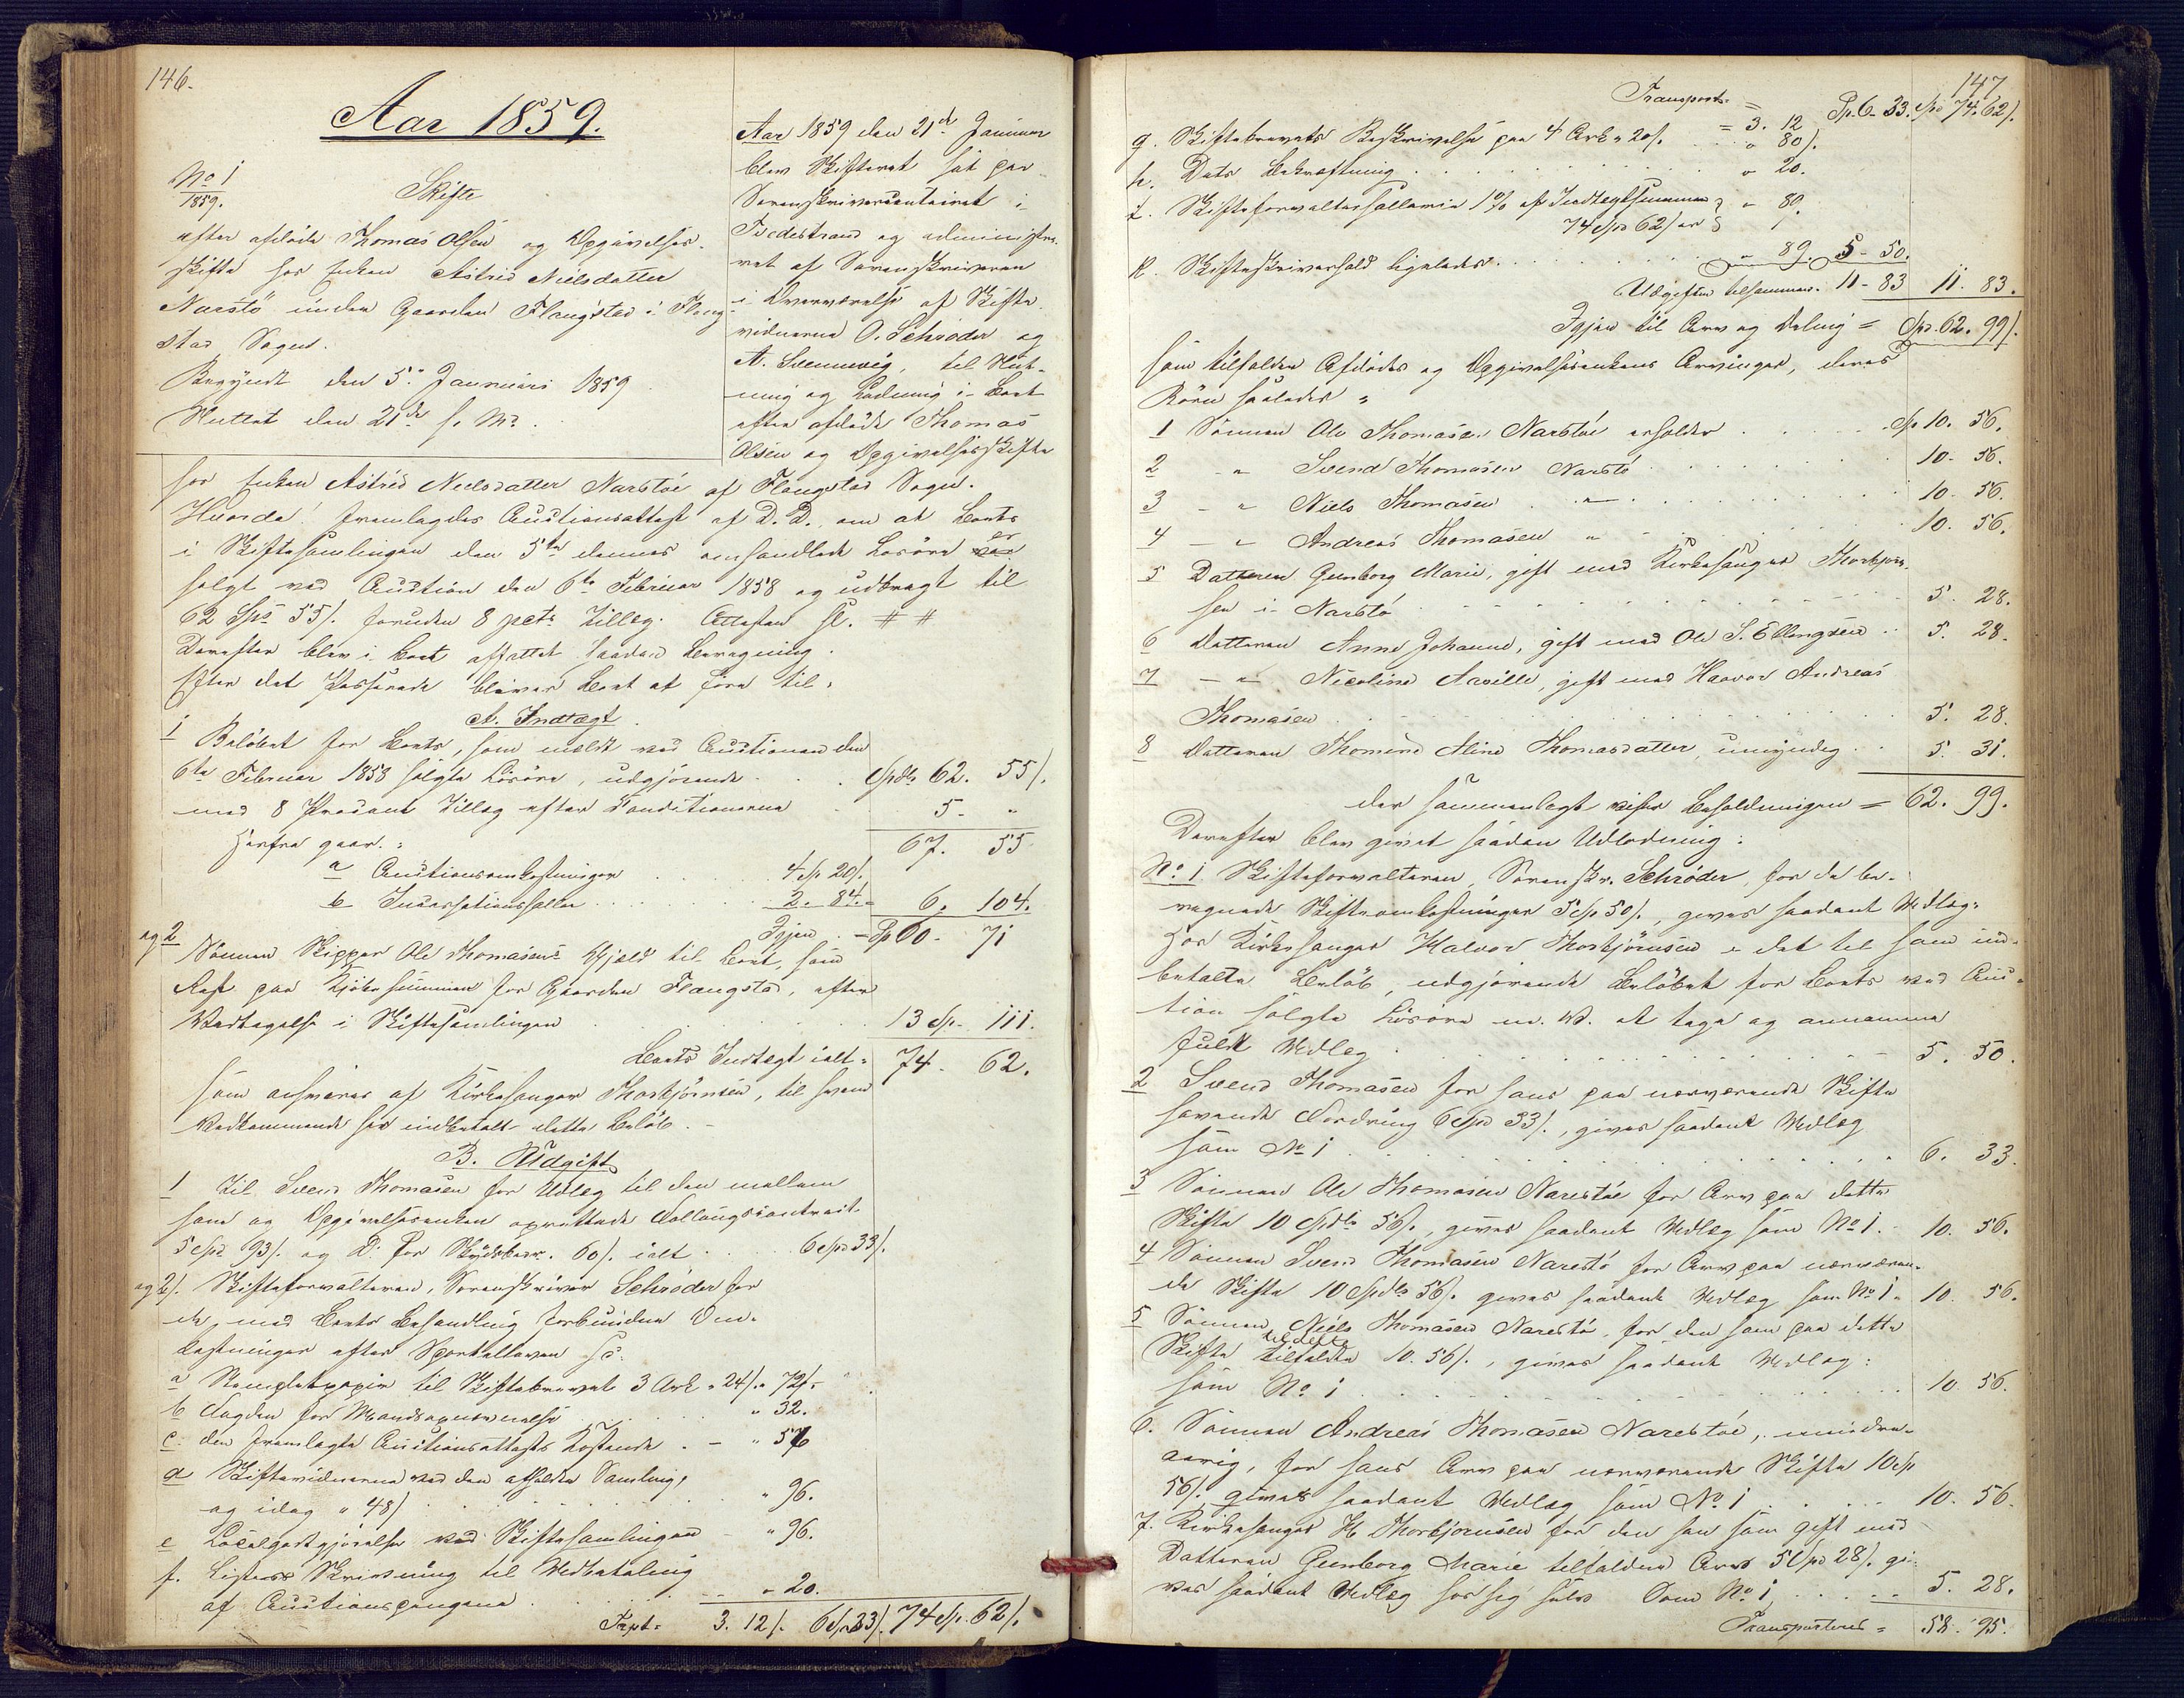 146.
Aar 1859.
No 1
1859.
Skifte
efter afdøde Thomas Olsen og Opgivelses-
skifte hos Enken Astrid Nielsdatter
Narestø under Gaarden Flangstad i Flang-
stad Sogn.
Begyndt den 5te Januari 1859
Sluttet den 21de s. Md.
Aar 1859 den 21de Januar
blev Skifteret sat paa
Sorenskrivercontoiret i
Tvedestrand og administre-
ret af Sorenskriveren
i Overværelse af Skifte-
vidnerne O. Schrøder og
A. Svennevig, til Slut-
ning og Lodning i Boet
efter afdøde Thomas
Olsen og Opgivelsesskifte
hos Enken Astrid Nielsdatter Narestøe af Flangstad Sogn.
Hvorda! fremlagdes Auctionsattest af D. D. om at Boets
i Skiftesamlingen den 5te dennes omhandlede Løsøre er
solgt ved Auction den 6te Februar 1858 og udbragt til
62 Spd 55/. foruden 8 pct. Tillæg. Attesten fl. # #
Derefter blev i Boet affattet saadan Beregning.
Efter det Passerede bliver Boet at føre til.
A. Indtægt.
1 Beløbet for Boets, som meldt ved Auctionen den
6te Februar 1858 solgte Løsøre, udgjørende . . . Spdlr 62. 55/.
med 8 Procent Tillæg efter Conditionerne 5. "
Herfra gaar: 67. 55
a Auctionsomkostninger 4 Sp 20/.
b Incassationssallær 2. 84. = 6. 104.
Igjen - Sp 60. 71
og 2 Sønnen Skipper Ole Thomasens Gjæld til Boet, som
Rest paa Kjøbesummen for Gaarden Flangstad, efter
Vedtagelse i Skiftesamlingen 13 Sp. 111.
Boets Indtægt ialt = 74. 62.
som ansvares af Kirkesanger Thorbjørnsen, til hvem
Vedkommende har indbetalt dette Beløb. -
B. Udgift.
1 Til Svend Thomasen for Udlæg til den mellem
ham og Opgivelsesenken oprettede Follougscontract
5 Spd 93/. og D: for Skydsbarr. 60/. ialt . . . 6 Spd 33/.
og 2/. Skifteforvalteren, Sorenskriver Schrøder for
de, med Boets Behandling forbundne Om-
kostninger efter Sportelloven sc:
a Stemplet papir til Skiftebrevet 3 Ark a 24/. " 72/.
b Dagden for Mandsopnævnelse " 32.
c. den fremlagte Auctionsattests Kostende. - " 56
d Skiftevidnerne ved den afholdte Samling,
og idag a 48/ " 96.
e Localgodtgjørelse ved Skiftesamlingen " 96.
f. Listers Skrivning til Udbetaling
af Auctionspengene . . . " 20.
Trpt. 3. 12/. 6 Spd 33/. 74 Sp. 62/.
147
Transport = = 3. 12 Sp. 6. 33. Spd 74. 62/.
g. Skiftebrevets Beskrivelse paa 4 Ark a 20/. . . . " 80/.
h. Dets Bekræftning . . . " 20.
i. Skifteforvaltersallarie 1% af Indtægtsummen
74 Spd 62/ er " 89.
k. Skifteskriversald ligeledes . . . " 89. 5 - 50.
Udgiften tilsammen. 11 - 83 11. 83.
Igjen til Arv og Deling = Spd. 62. 99/.
som tilfalder Afdødes og Opgivelsesenkens Arvinger, deres
Børn saaledes "
1 Sønnen Ole Thomasen Narestøe erholder . . . Sp 10. 56.
2 - " Svend Thomasen Narestø . . . 10. 56.
3 - " Niels Thomasen . " . . . 10. 56.
4 - " Andreas Thomasen " . . . 10. 56.
5 Datteren Gunborg Marie, gift med Kirkesanger Thorbjørn-
sen i Narestø . . . 5. 28.
6 Datteren Anne Johanne, gift med Ole S. Ellingsen . . 5. 28.
7 - " Nicoline Aasille, gift med Haavor Andreas
Thomasen . . . 5. 28.
8 Datteren Thomine Aline Thomasdatter, umyndig . . 5. 31.
der sammenlagt viser Beholdningen = 62. 99.
Derefter blev givet saadan Udlodning:
No 1 Skifteforvalteren, Sorenskr. Schrøder, for de be-
regnede Skifteomkostninger 5 Sp 50/., gives saadant Udlæg:
Hos Kirkesanger Halvor Thorbjørnsen i det til ham ind-
betalte Beløb, udgjørende Beløbet for Boets ved Auc-
tion solgte Løsøre m. V. at tage og annamme
fuldt Udlæg . . . 5. 50.
2 Svend Thomasen for hans paa nærværende Skifte
havende Fordring 6 Spd 33/., gives saadant Udlæg
som No 1 . . . 6. 33.
3 Sønnen Ole Thomasen Narestøe for Arv paa dette
Skifte 10 Spdlr 56/., gives saadant Udlæg som No 1. - 10. 56.
4 Sønnen Svend Thomasen Narestø for Arv paa nærværen-
de Skifte 10 Spdlr 56/. gives saadant Udlæg som No 1. 10. 56.
5 Sønnen Niels Thomasen Narestø, for den ham paa dette
Skifte tilfaldte 10. 56/., gives saadant Udlæg:
som No 1 . . . 10. 56.
6. Sønnen Andreas Thomasen Narestøe, mindre-
aarig, for hans Arv paa nærværende Skifte 10 Sp
56/. gives saadant Udlæg som No 1 . . . 10. 56.
7. Kirkesanger H. Thorbjørnsen for den ham som gift med
Datteren Gunborg Marie tilfaldne Arv 5 Spd 28/. gi-
ves saadant Udlæg hos sig selv Som No 1 . . . 5. 28.
Transporteres = 58. 95.